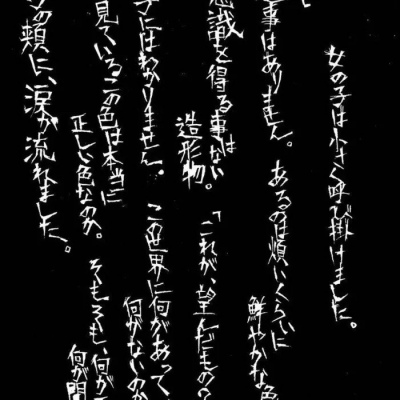 女の子は小さく呼び掛けました。
事はありません。
あるのは煩いくらいに
鮮やかな色
意識を得る事はない
造形物。
「これが、望んだもの?
子にはわかりません。
この世界に何があって、
何がないのか
見ているこの色は本当に
正しい色なのか。
そもそも、何が
何が間
の頬に、涙が流れました。